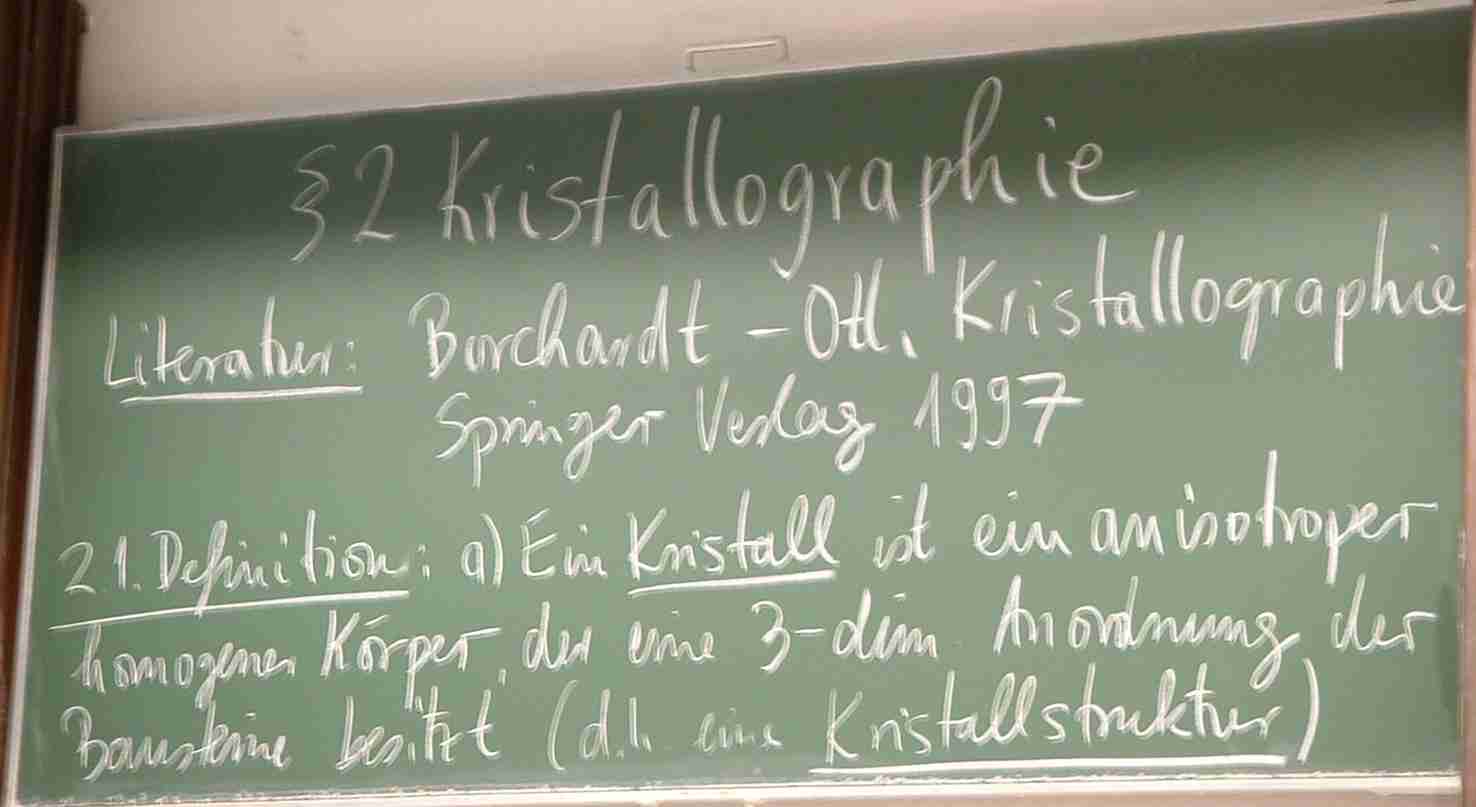 §2 Kristallographie
Literatur: Borchardt-Ott, Kristallographie
Springer Verlag 1997
2.1. Definition: a) Ein Kristall ist ein anisotroper
homogener Körper, der eine 3-dim. Anordnung der
Bausteine besitzt (d.h. eine Kristallstruktur)